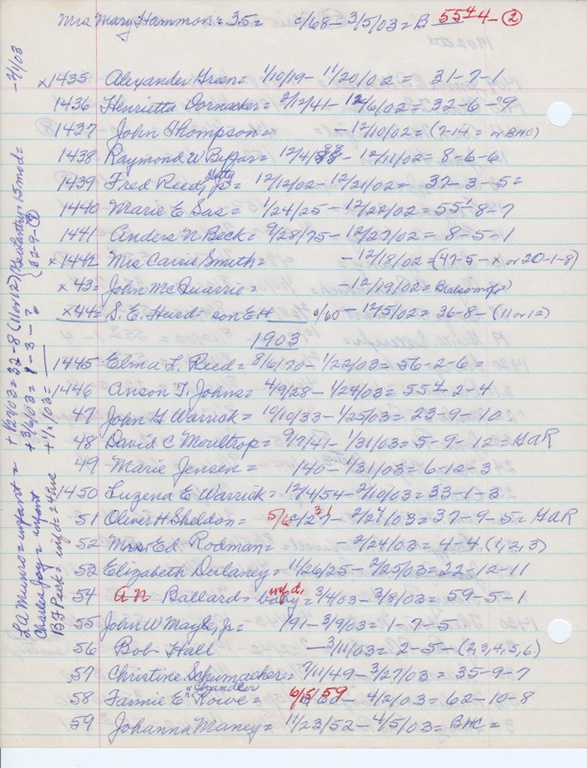 Mrs Mary Hammon = 35 = c/68 - 3/5/03 = B 55 4 - ②
x1435 Alexander Green = 1/10/19 - 11/20/02 = 31-7-1
1436 Henrietta Dornacker = 2/12/41 - 12/6/02 = 32-6-9
1437 John Thompson = - 12/10/02 = (7-14 = or BHC)
1438 Raymond W - 12/11/02 = 8-6-6
1439 Fred Reed, Jr = 12/12/02 - 12/21/02 = 37-3-5 =
1440 Marie E Sas = 1/24/25 - 12/22/02 = 55-8-7
1441 Anders N Beck = 9/28/75 - 12/27/02 = 8-5-1
x1442 Mrs Carrie Smith = - 12/18/02 = (47-5-x or 20-1-8)
x43 = John McQuarrie = - 12/19/02 =
x44 = S. E. Hurd = son EH c/60 - 12/5/02 = 36-8- (11 or 12)
1903
1445 Elma L. Reed = 8/6/70 - 1/22/03 = 56-2-6 =
1446 Anson T. Johns = 4/9/28 - 1/24/03 = 55 4-2-4
47 John G Warrick = 10/10/33 - 1/25/03 = 23-9-10
48 David C Moultrop = 9/7/41 - 1/31/03 = 5-9-12 = GAR
49 Marie Jensen = /40 - 1/31/03 = 6-12-3
1450 Luzena E Warrick = 12/4/54 - 2/10/03 = 33-1-3
51 Oliver H Sheldon = 03 = 37-9-5 = GAR
52 Mrs Ed. Rodman = - 2/24/03 = 4-4, (1, 2, 3)
53 Elizabeth Dulaney = 11/26/25 - 2/25/03 = 22-12-11
54 A N Ballard = baby = 3/4/03 - 3/8/03 = 59-5-1
55 John W Mayle, Jr = /91 - 3/9/03 = 1-7-5
56 Bob Hall - 3/11/03 = 2-5- (2, 3, 4, 5, 6)
57 Christine Schumacher = 7/11/49 - 3/27/03 = 35-9-7
58 Fannie E "Chandler" Rowe = 6/5/59 - 4/2/03 = 62-10-8
59 Johanna Maney = 11/23/52 - 4/5/03 = BHC =
L A Munro = infant =
Charles = infant + 3/6/03 =
B F Peck = inft = + 1/x/03 =